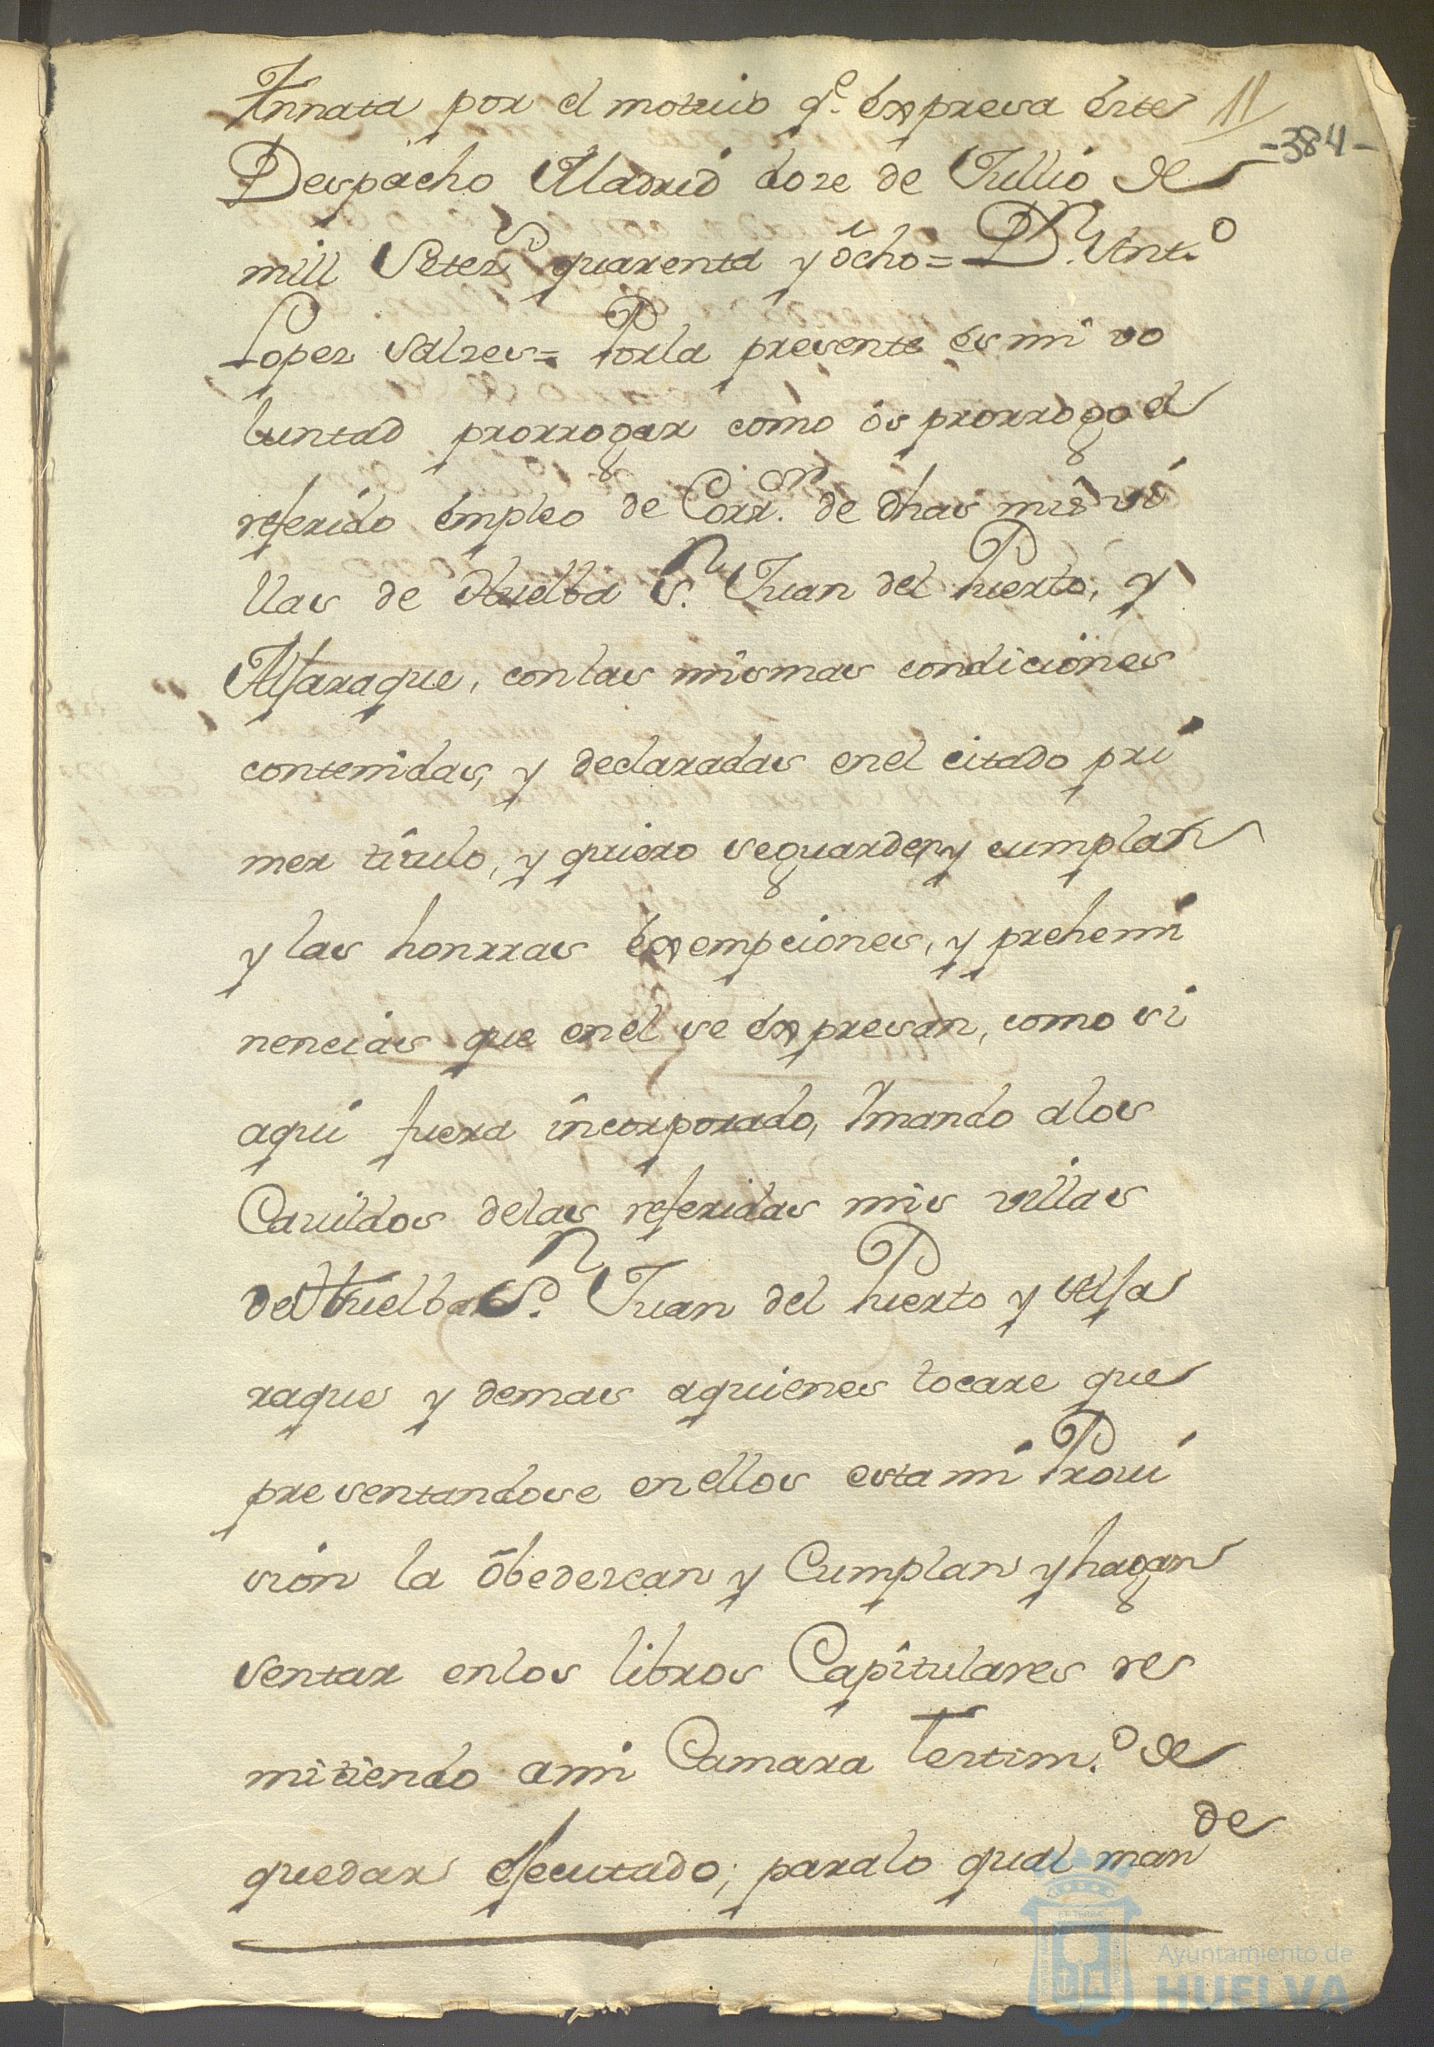 Annata por el motiuo q.e expresa este 11
-384-
Despacho Madrid doze de Jullio de
mill Setez.s quarenta y ocho= D.n Ant.o
Lopez Salzes= Porla presente es mi vo
luntad prorrogar como os prorrogo el
referido empleo de Corr.on de dhas mis vi
llas de Huelba S.n Juan del Puerto, y
Alfaraque, conlas mismas condiciones
contenidas, y declaradas enel citado pri
mer titulo, y quiero seguarden, y cumplan
y las honrras exempciones, y prehemi
nencias que enel se expresan, como si
aqui fuera incorporado, Ymando alos
Cauildos delas referidas mis villas
de Huelba S.n Juan del Puerto y Alfa
raque y demas aquienes tocare que
presentandose enellos estami Proui
sion la obedezcan y Cumplan yhagan
sentar enlos libros Capitulares re
mitiendo ami Camara Testim.o de
quedar efecutado; paralo qual man
de
Ayuntamiento de
HUELVA